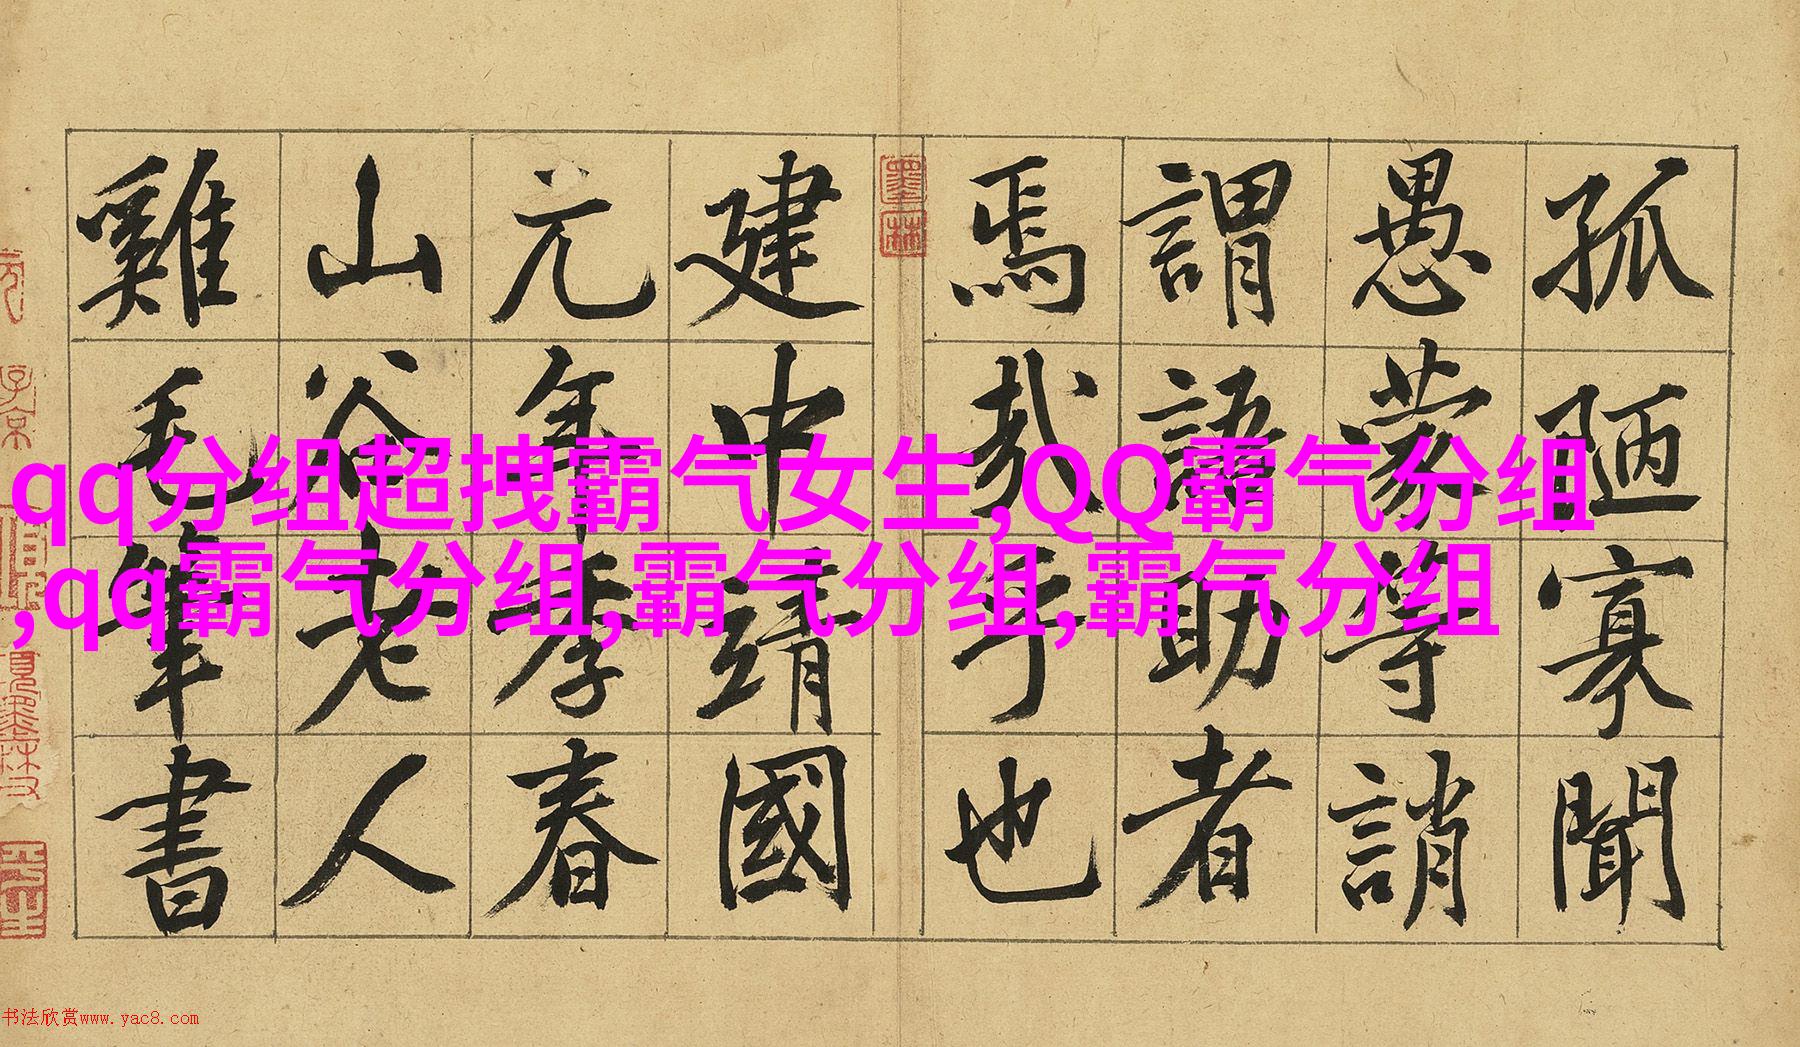 孤陋寡聞
愚蒙等誚
謂語助者
焉哉乎也
建中靖國
元年李春
山谷老人
雞毛筆書
墨林
qq分组超拽霸气女生,QQ霸气分组
,qq霸气分组,霸气分组,霸气分组
书法欣赏www.yac8.com